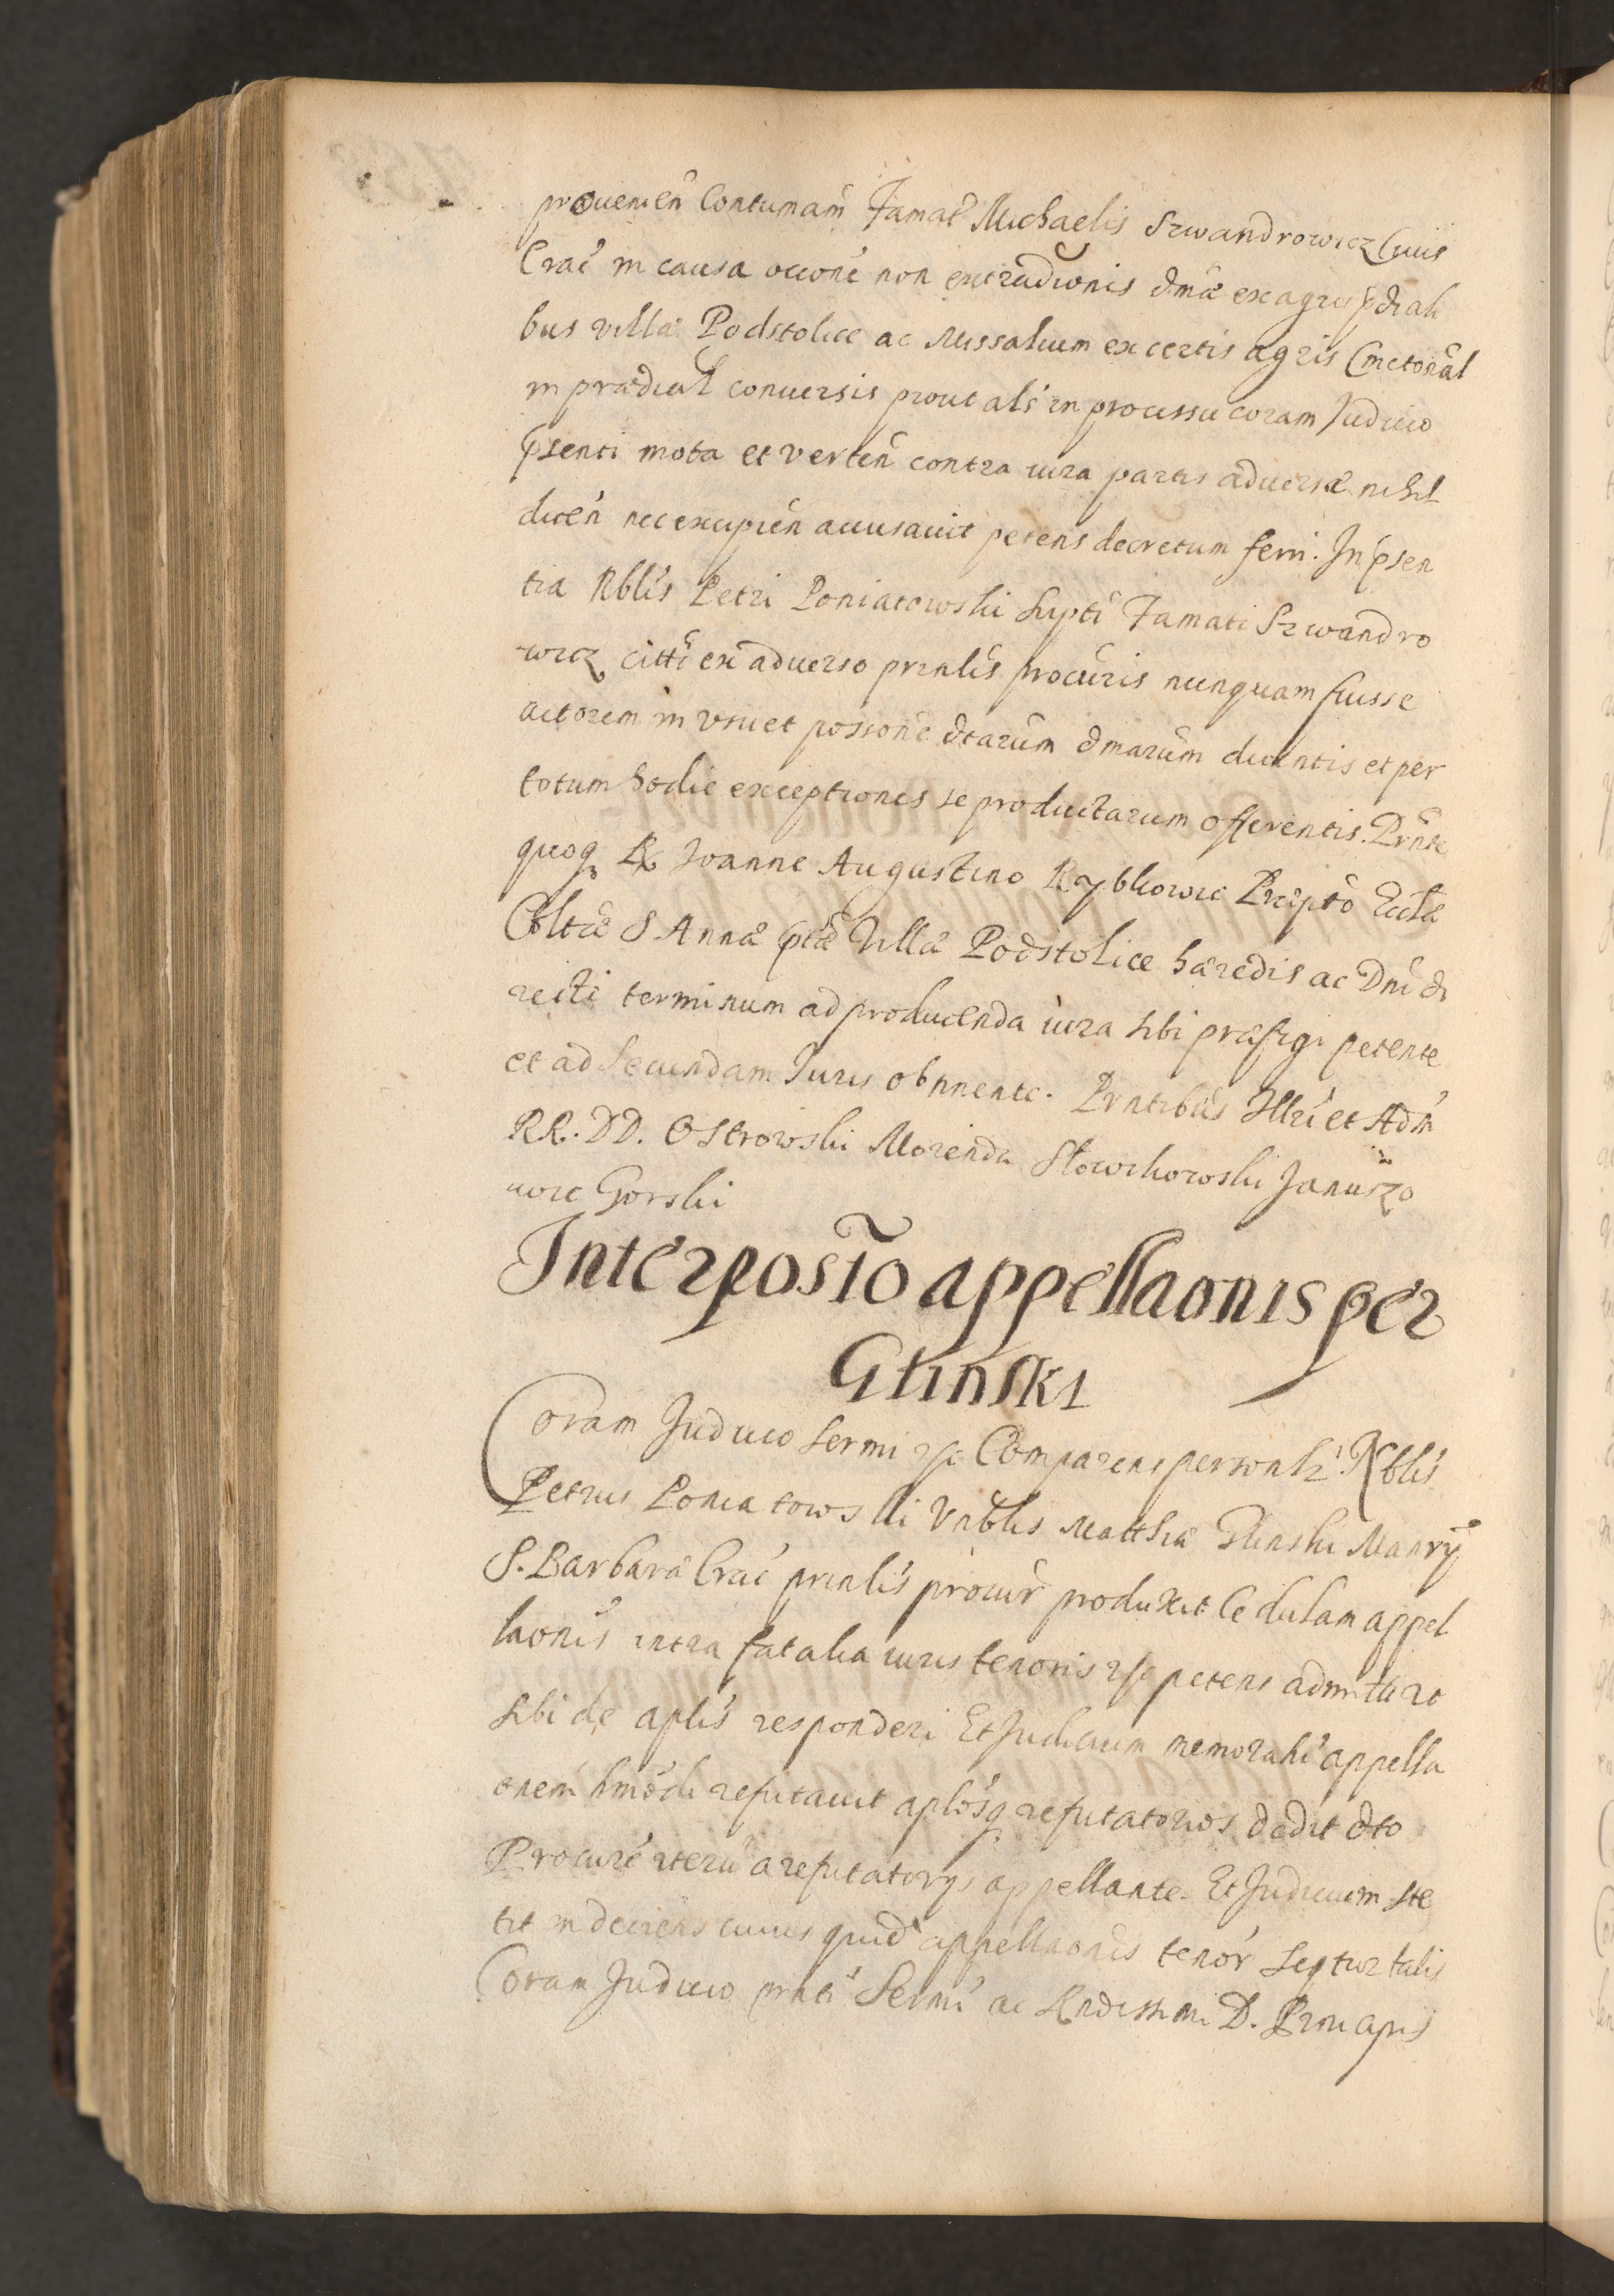 prouenien̄ Contumam̄ Famat̄ Michaelis Szwandrowicz Ciuis
Crac̄ in causa occōne non extradōnis dmæ ex agris p̄diali
bus villæ Podstolice ac Missalium ex certis agris Cmetonāl
in prædial̄ conuersis prout als in processu coram Judicio
p̄senti mota et verten̄ contra iura partis aduersæ nihil
dicen̄ nec excipien̄ accusauit petens decretum ferri. In p̄sen
tia Nblis Petri Poniatowski supti Famati Szwandro
wicz citti ex aduerso prinlis procuris nunquam fuisse
actorem in vsu et possone dtarum dmarum dicentis et per
totum hodie exceptiones se producturum offerentis. Prnte
quoq R Joanne Augustino Rybkowic Præpto Eccla
Colltæ S Annæ p̄tæ Villæ Podstolice hæredis ac Dni di
recti terminum ad producenda iura sibi præfigi petente
et ad secundam Juris obtinente. Prntibus Illri et Adm
RR. DD. Ostrowski Morenda Słowikowski Januszo
wic Gorski
Interpositō appellaōnis per
Glinski
Coram Judicio Sermi &c Comparens personlr Nblis
Petrus Poniatowski Vnblis Matthiæ Glinski Manrÿ
S. Barbaræ Crac̄ prinlis procur produxit Cedulam appel
laonis intra fatalia iuris tenoris &c petens admitti et
sibi de aplis responderi Et Judicium memorati appella
onem hmōdi refutauit aplosq refutatorios dedit dto
Procure iterū a refutatorys appellante. Et Judicium ste
tit in decretis cuius quid appellaonis tenor seqtur talis
Coram Judicio prnti Sermi ac Rndissimi D. Principis